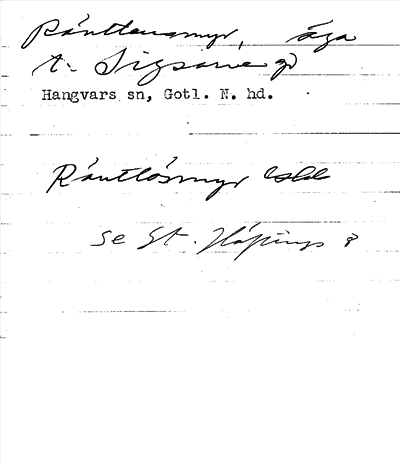 Räntlausmyr, äga
t. Sigsarve gd
Hangvars sn, Gotl. N. hd.
Räntlösmyr
se St. Häftings 8